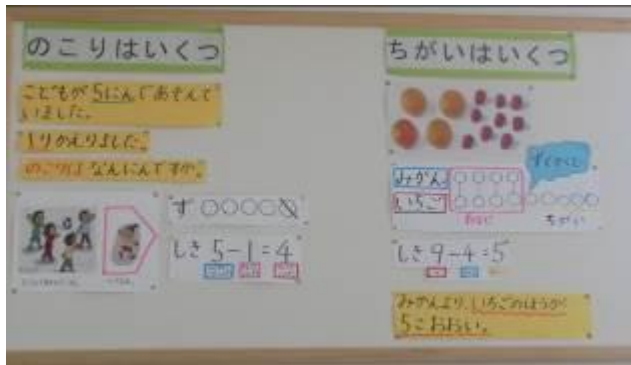 のこりはいくつ
こどもが5にんであそんで
いました。
1りかえりました。
のこりはなんにんですか。
ず
しき 5-1=4
ちがいはいくつ
ずをかくと
みかん
いちご
おなじ
ちがい
しき 9-4=5
みかんより、いちごのほうが
5こおおい。